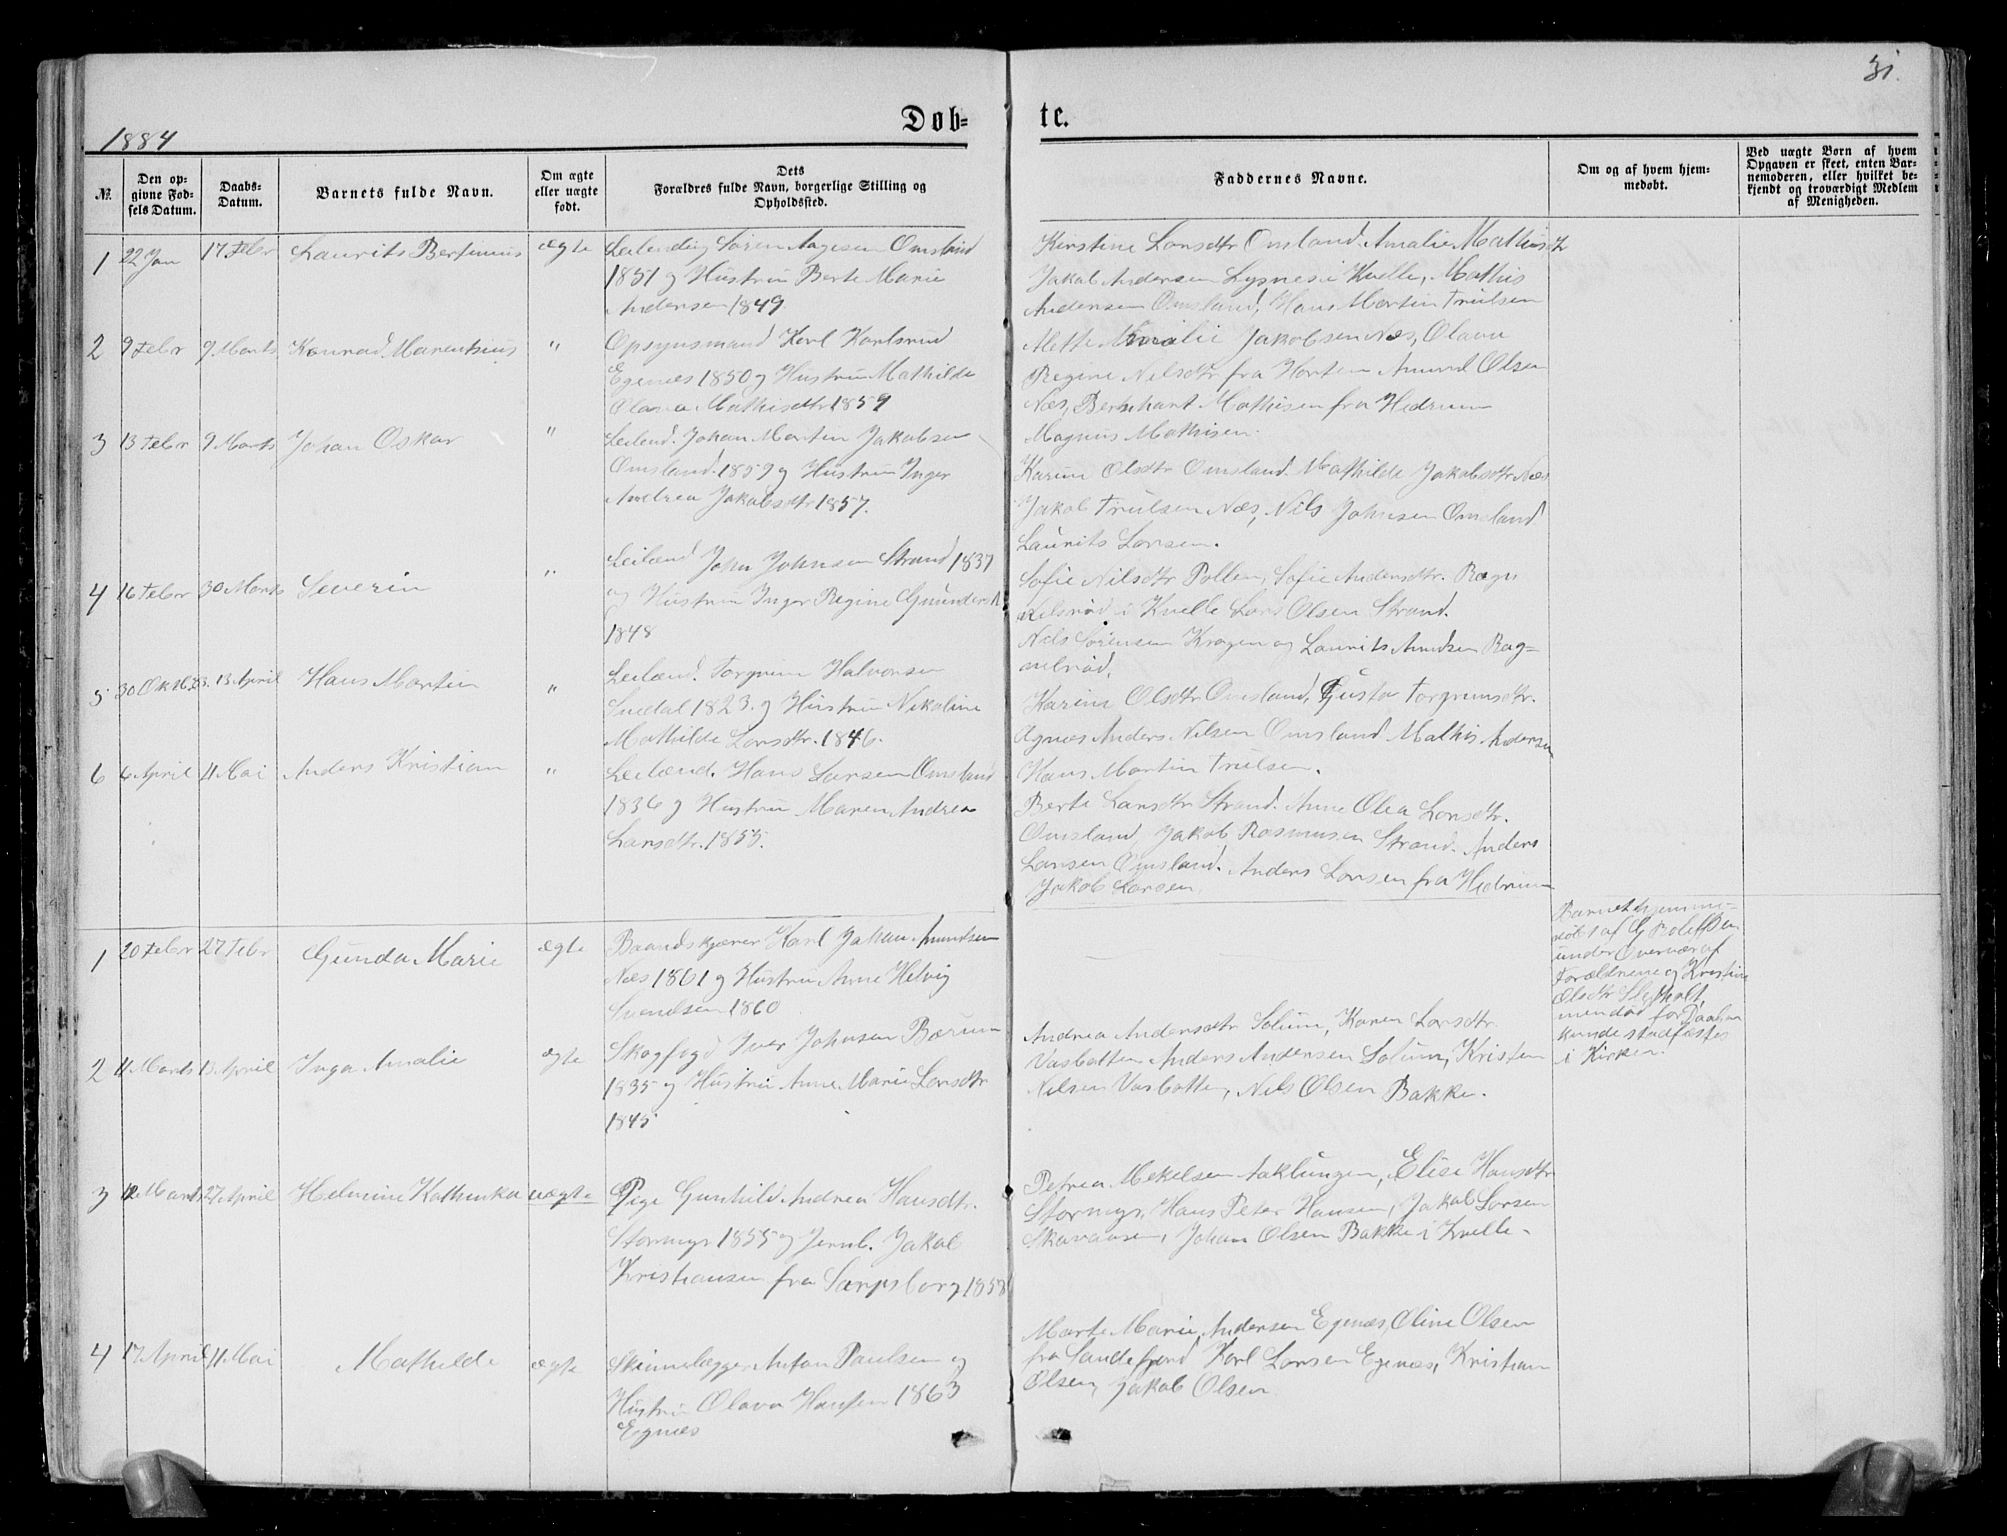 31.
1884
Døb=
te.
№.
Den op-
givne Fød-
sels Datum.
Daabs-
Datum.
Barnets fulde Navn.
Om ægte
eller uægte
født.
Dets
Forældres fulde Navn, borgerlige Stilling og
Opholdssted.
Faddernes Navne.
Om og af hvem hjem-
medøbt.
Ved uægte Børn af hvem
Opgaven er skeet, enten Bar-
nemoderen, eller hvilket be-
kjendt og troværdigt Medlem
af Menigheden.
1 22 Jan 17 Febr Laurits Bertinius ægte
Leilending Søren Aagesen Omsland
1851 og Hustru Berte Marie
Andersen 1849
Kirstine Larsdtr Omsland. Amalie Mathisdtr
Jakob Andersen Lysnes i Kvelle, Mathis
Andersen Omsland, Hans Martin Trulsen
2 9 Febr 9 Marts Konrad Marentius "
Opsynsmand Karl Karlsrud
Egenæs 1850 og Hustru Mathilde
Olava Mathisdtr 1859
Mette Amalie Jakobsen Næs, Olava
Regine Nilsdtr fra Horten Amund Olsen
Næs, Bernhart Mathisen fra Hedrum
Magnus Mathisen.
3 13 Febr 9 Marts Johan Oskar "
Leilend. Johan Martin Jakobsen
Omsland. 1859 og Hustru Inger
Andrea Jakobsdtr 1857.
Karine Olsdtr Omsland. Mathilde Jakobsdtr Næs
Jakob Trulsen Næs, Nils Johnsen Omsland
Laurits Larsen.
4 16 Febr 30 Marts Severin "
Leilænd John Johnsen Strand 1837
og Hustru Inger Regine Gundersd
1848
Sofie Nilsdtr Pollen, Sofie Andersdtr. Ragn
nilsrød i Kvelle Lars Olsen Strand.
Nils Sørensen Kragen og Laurits Amdsen Rag=
nilsrød,
5 30 Okt 1883. 13 April Hans Martin "
Leilænd. Torgrim Halvorsen
Suedal 1823. og Hustru Nikoline
Mathilde Larsdtr. 1846.
Karine Olsdtr Omsland, Gusta Torgrimsdtr.
Agnæs Anders Nilsen Omsland Mathis Andersen
Hans Martin Trulsen.
6 6 April 11 Mai Anders Kristian "
Leilænd. Hans Larsen Omsland
1836 og Hustru Maren Andrea
Larsdtr. 1855.
Berte Larsdtr Strand. Anne Olea Larsdtr.
Omsland, Jakob Rasmusen Strand. Anders
Larsen Omsland. Anders Larsen fra Hedrum
Jakob Larsen.
1 20 Febr 27 Febr Gunda Marie ægte
Baandskjærer Karl Johan Amundsen
Næs 1861 og Hustru Anne Helvig
Svendsen 1860
Barnet hjemme-
døbt af G Bolette
under Overvær af
Forældrene og Kristine
Olsdtr Slepholt,
men død før Daaben
kunde stadfæstes
i Kirken.
2 11 Marts 13 April Inga Amalie ægte
Skogfogd Iver Johnsen Bærum
1835 og Hustru Anne Marie Larsdtr
1845
Andrea Andersdtr Solum, Karen Larsdtr
Vasbotten Anders Andersen Solum, Kristen
Nilsen Vasbotten, Nils Olsen Bakke.
3 12 Marts 27 April Helmine Kathinka uægte
Pige Gunhild Andrea Hansdtr.
Stormyr 1855 og Jernb. Jakob
Kristiansen fra Sarpsborg 1858
Petrea Mekelsen Aaklungen, Elise Hansdtr
Stormyr, Hans Peter Hansen, Jakob Larsen
Skavaasen, Johan Olsen Bakke i Kvelle-
4 17 April 11 Mai Mathilde ægte
Skinnelægger Anton Paulsen og
Hustru Olava Hansen 1863
Egnæs
Marte Marie Andersen Egenæs, Oline Olsen
fra Sandefjord, Karl Larsen Egenæs, Kristian
Olsen, Jakob Olsen